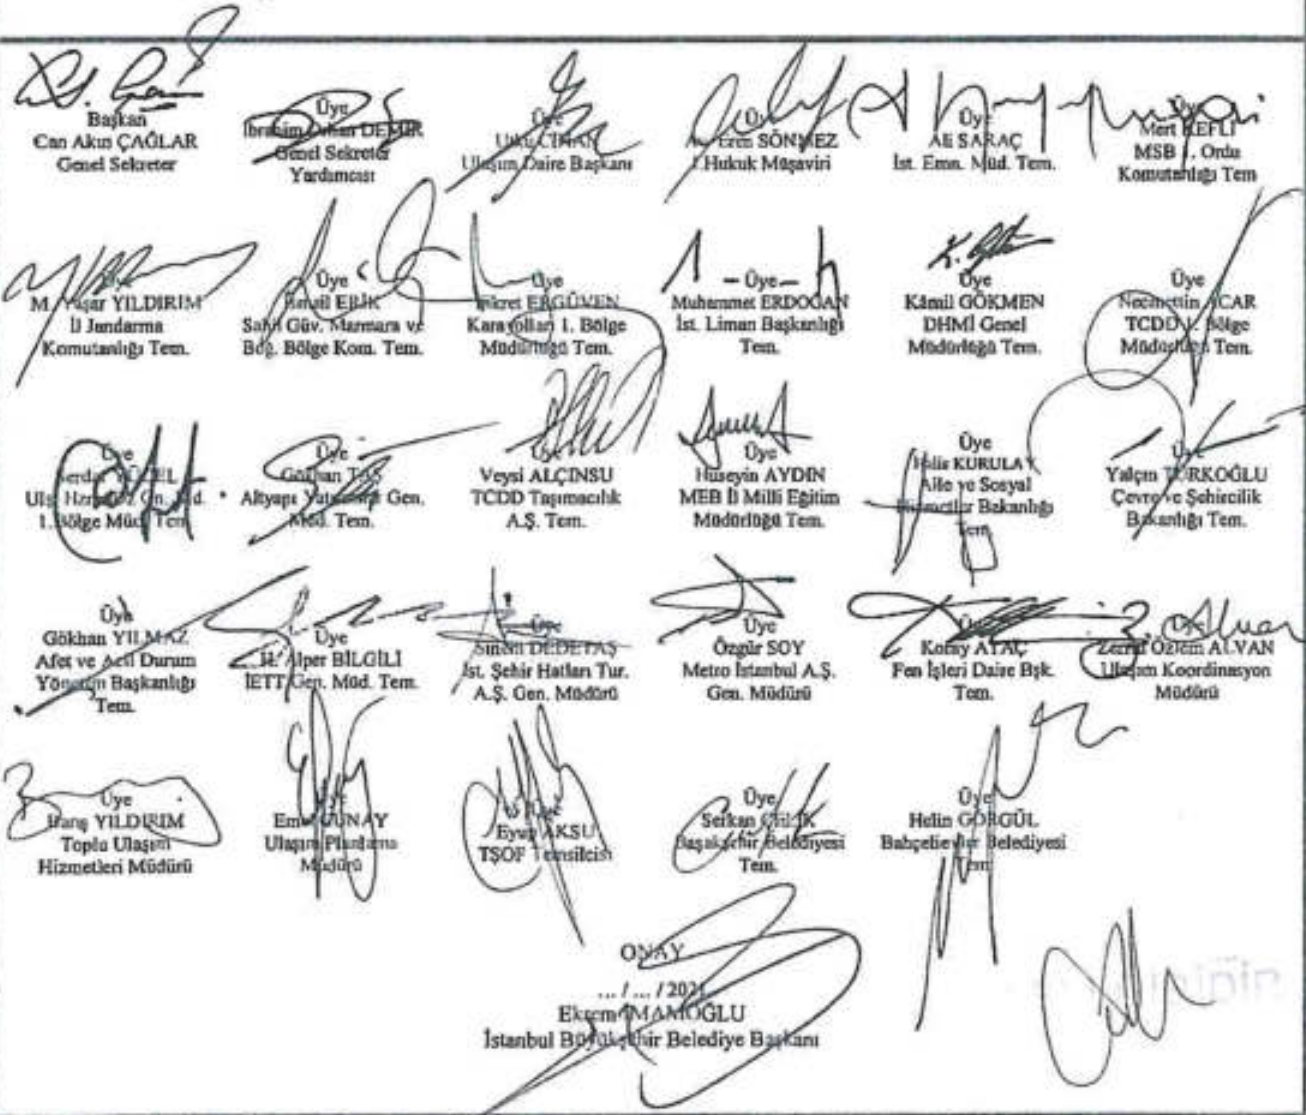 Başkan
Can Akın ÇAĞLAR
Genel Sekreter
Üye
İbrahim Orhan DEMİR
Genel Sekreter
Yardımcısı
Üye
Utku CİHAN
Ulaşım Daire Başkanı
Üye
Eren SÖNMEZ
1.Hukuk Müşaviri
Üye
Ali SARAÇ
İst. Emn. Müd. Tem.
Üye
Mert KEFLİ
MSB 1. Ordu
Komutanlığı Tem
Üye
M. Yaşar YILDIRIM
İl Jandarma
Komutanlığı Tem.
Üye
İsmail ERİK
Sahil Güv. Marmara ve
Boğ. Bölge Kom. Tem.
Üye
Fikret ERGÜVEN
Karayolları 1. Bölge
Müdürlüğü Tem.
Üye
Muhammet ERDOĞAN
İst. Liman Başkanlığı
Tem.
Üye
Kâmil GÖKMEN
DHMİ Genel
Müdürlüğü Tem.
Üye
Necmettin ACAR
TCDD 1. Bölge
Müdürlüğü Tem.
Üye
Serdar YÜCEL
Ula. Hizmetleri
1. Bölge Müd. Tem.
Üye
Gökhan TAŞ
Altyapı Yatırımları Gen.
Müd. Tem.
Üye
Veysi ALÇINSU
TCDD Taşımacılık
A.Ş. Tem.
Üye
Hüseyin AYDIN
MEB İl Milli Eğitim
Müdürlüğü Tem.
Üye
Halis KURULAY
Aile ve Sosyal
Hizmetler Bakanlığı
Tem.
Üye
Yalçın TÜRKOĞLU
Çevre ve Şehircilik
Bakanlığı Tem.
Üye
Gökhan YILMAZ
Afet ve Acil Durum
Yönetim Başkanlığı
Tem.
Üye
H. Alper BİLGİLİ
İETT Gen. Müd. Tem.
Üye
Sinem DEDETAŞ
İst. Şehir Hatları Tur.
A.Ş. Gen. Müdürü
Üye
Özgür SOY
Metro İstanbul A.Ş.
Gen. Müdürü
Üye
Koray ATAÇ
Fen İşleri Daire Bşk.
Tem.
Üye
Özlem ALVAN
Ulaşım Koordinasyon
Müdürü
Üye
Barış YILDIRIM
Toplu Ulaşım
Hizmetleri Müdürü
Üye
GÜNAY
Ulaşım Planlama
Müdürü
Üye
Eyup AKSU
TŞOF Temsilcisi
Üye
Serkan ÇELİK
Başakşehir Belediyesi
Tem.
Üye
Helin GÖRGÜL
Bahçelievler Belediyesi
Tem
ONAY
... / ... / 2021
Ekrem İMAMOĞLU
İstanbul Büyükşehir Belediye Başkanı